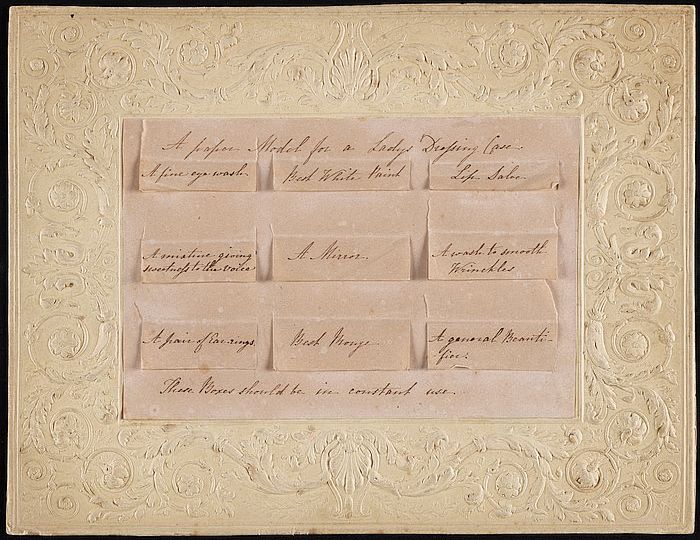 A paper Model for a Ladys Dressing Case.
A fine eye wash.
Best White Paint
Lip Salve.
A mixture giving
sweetness to the voice
A Mirror.
A wash to smooth
Wrinckles
A pair of Ear-rings.
Best Rouge
A general Beauti-
fier.
These Boxes should be in constant use.